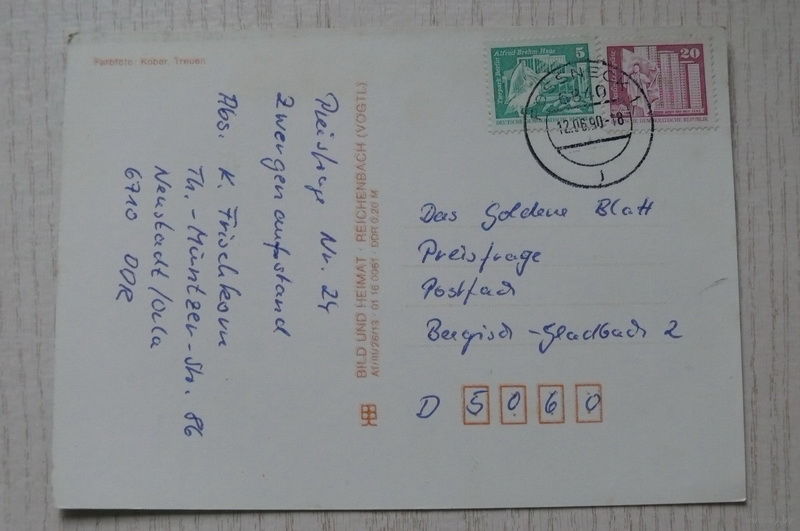 Farbfoto: Kober, Treuen
Preisfrage Nr. 24
Zwergenaufstand
Abs. K. Frischkorn
Th.-Müntzer-Str. 86
Neustadt/Orla
6710 DDR
BILD UND HEIMAT · REICHENBACH (VOGTL)
A1/III/26/13 · 01 16 0061 · DDR 0,20 M
Alfred-Brehm-Haus
5
Tierpark Berlin
20
12.06.90-18
Das Goldene Blatt
Preisfrage
Postfach
Bergisch-Gladbach 2
D 5060